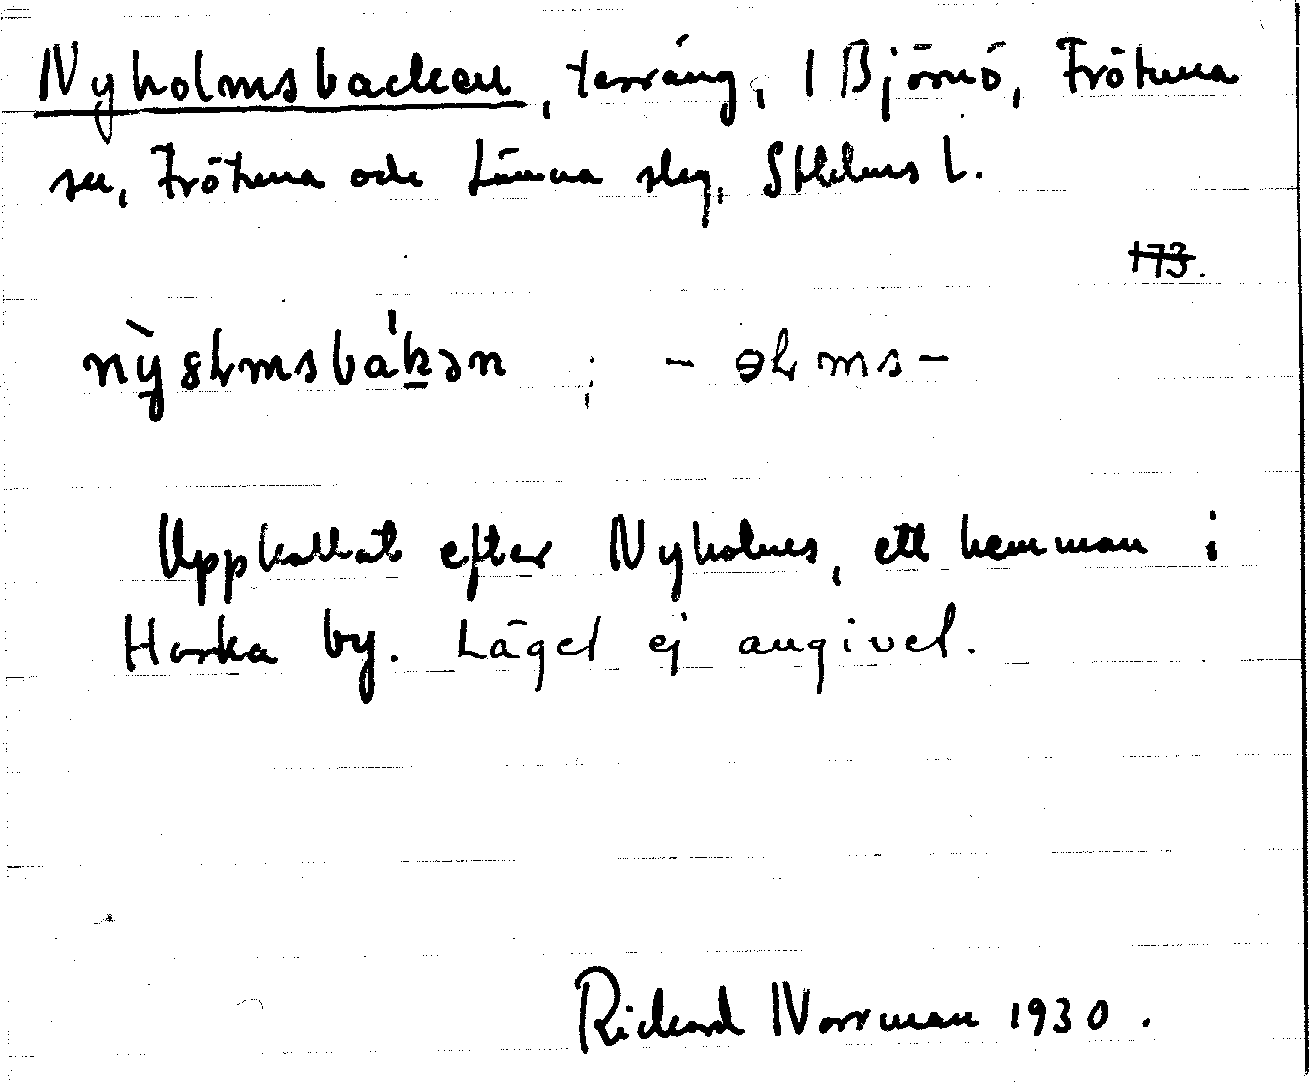 Nyholmsbacken, terräng, 1 Björnö, Frötuna
sn, Frötuna och Länna slag, Sthlms l.
173.
Uppkallat efter Nyholmes, ett hemman i
Harka by. Läget ej angivet.
Rickard Norrman 1930.